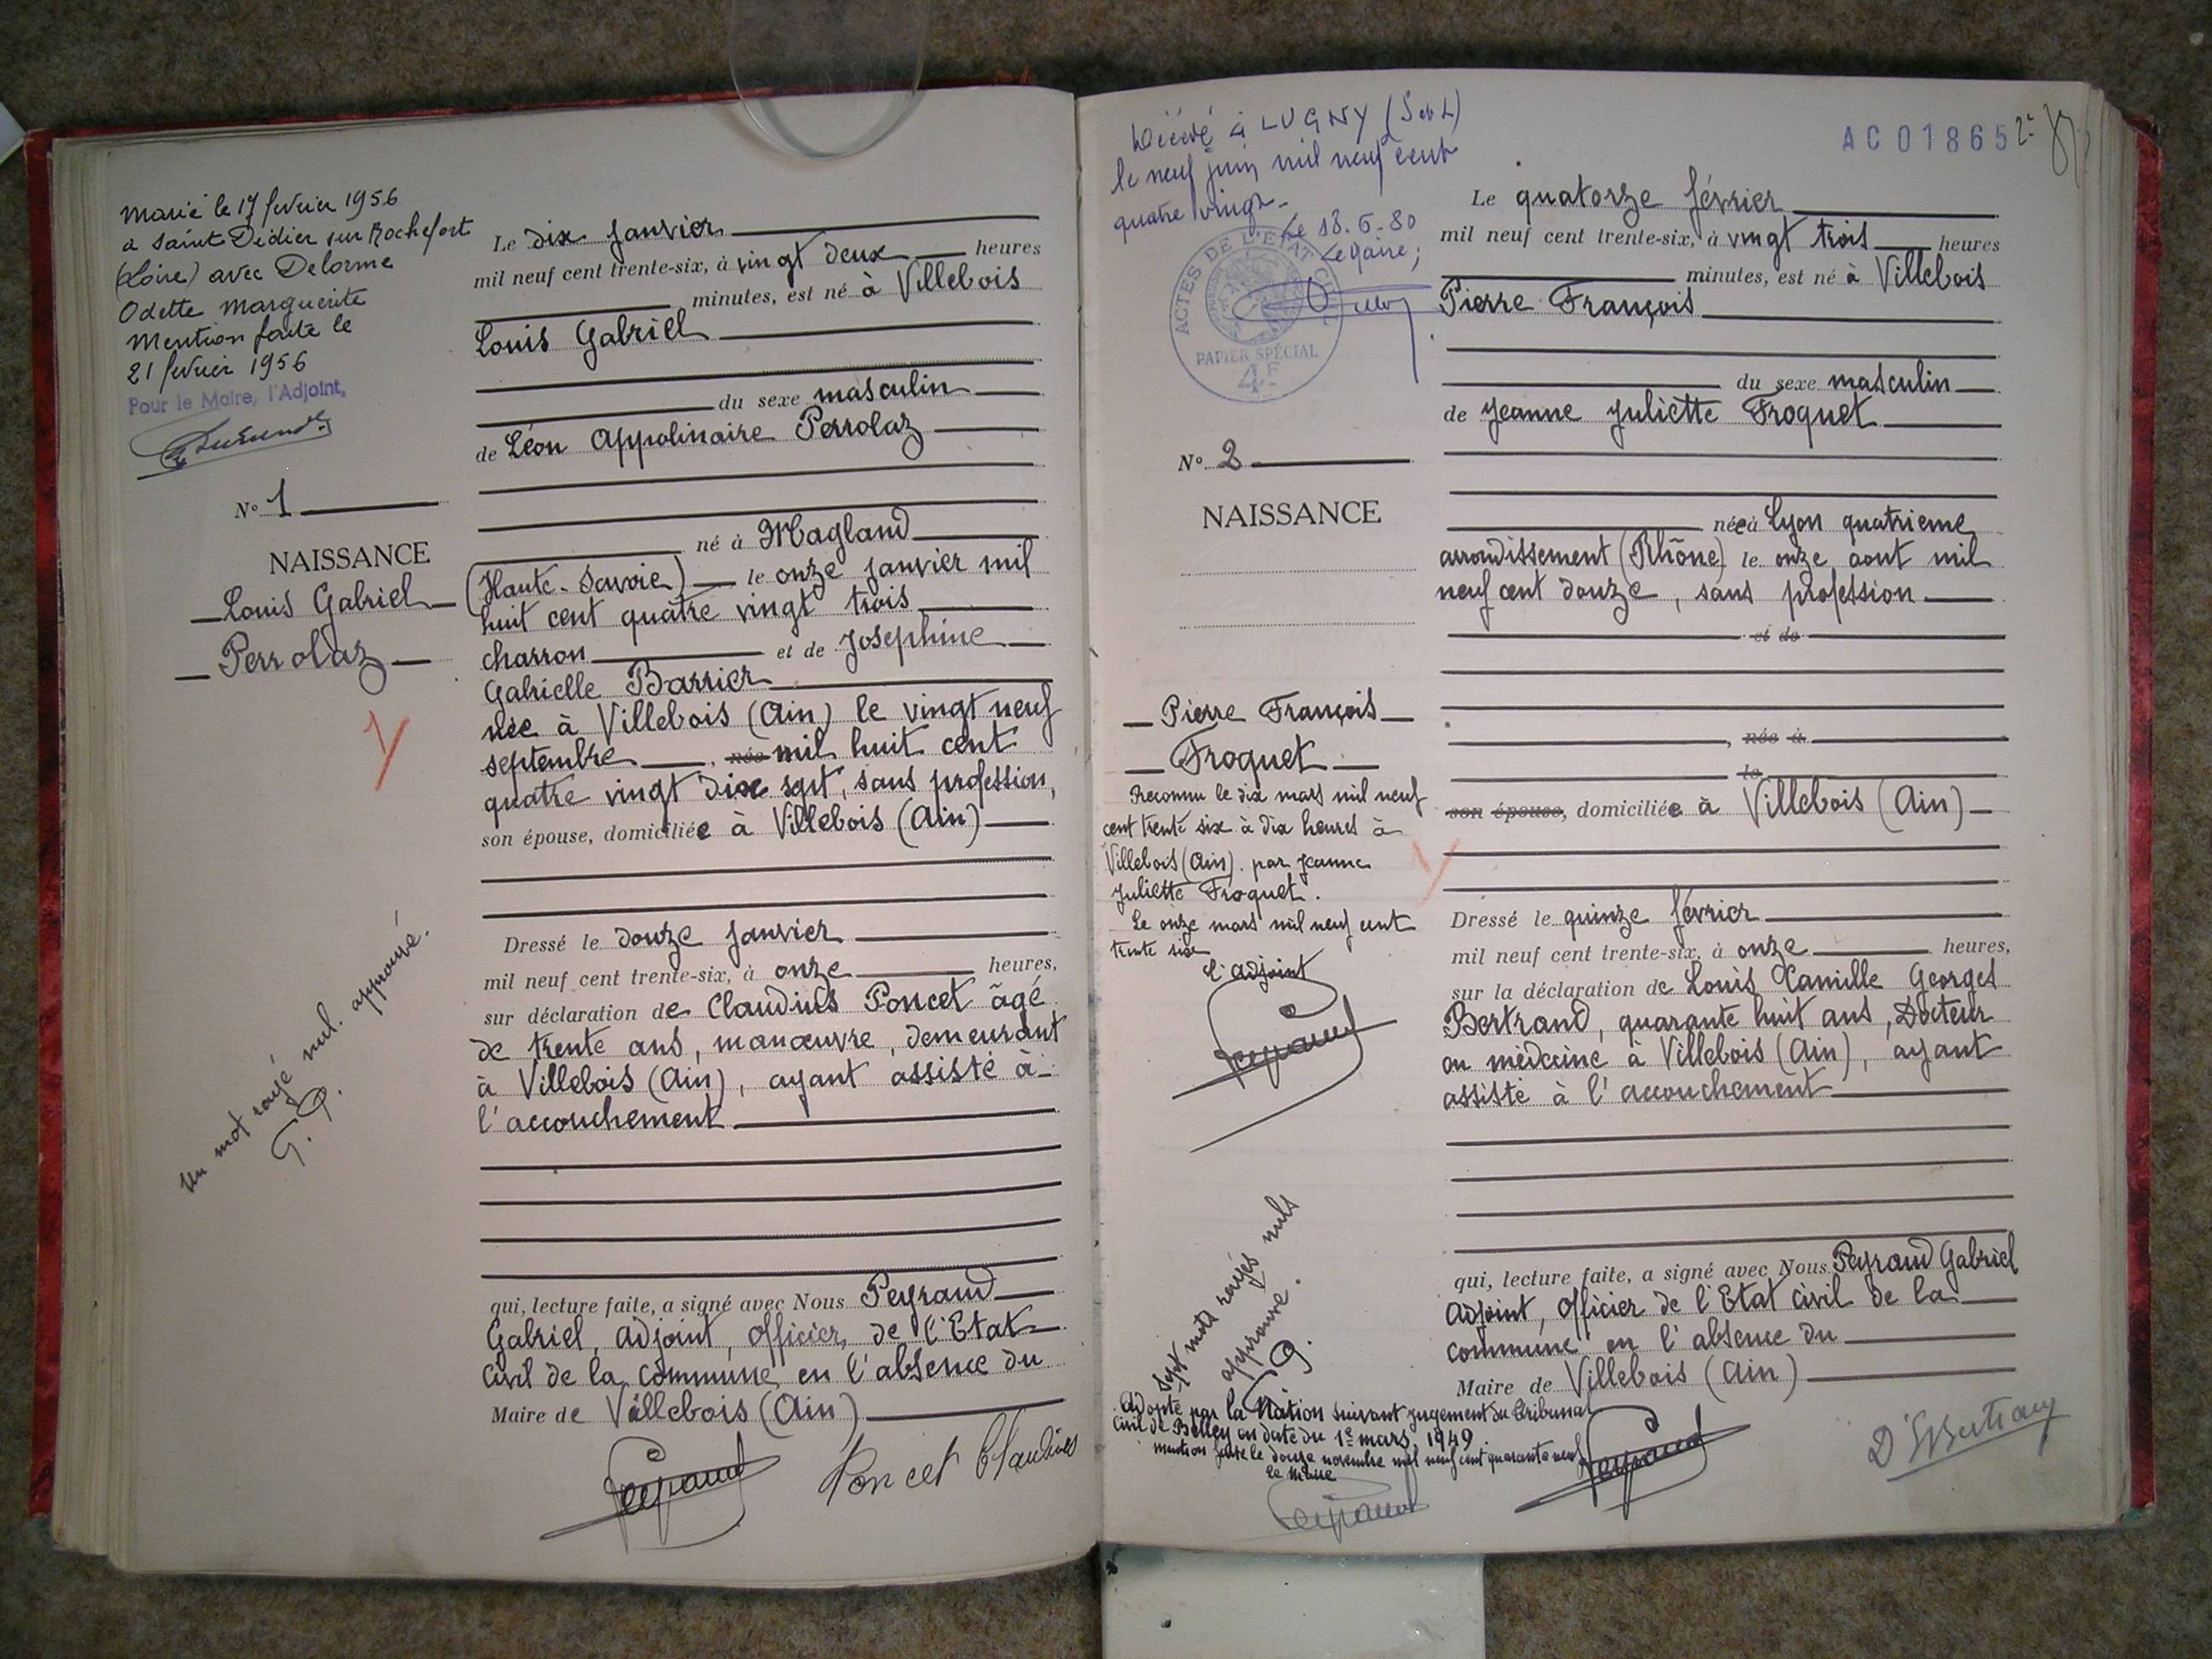 Marié le 17 fevrier 1956
a Saint Didier sur Rochefort
(Loire) avec Delorme
Odette Marguerite
Mention faite le
21 fevrier 1956
Pour le Maire, l'Adjoint,
N° 1
NAISSANCE
Louis Gabriel
Perrolaz
1
Un mot rayé nul. approuvé.
G. P.
Le dix janvier
mil neuf cent trente-six, à vingt deux heures
minutes, est né à Villebois
Louis Gabriel
du sexe masculin
de Léon Appolinaire Perrolaz
né à Magland
(Haute-Savoie) le onze janvier mil
huit cent quatre vingt trois
charron et de Josephine
Gabrielle Barrier
née à Villebois (Ain) le vingt neuf
septembre, née mil huit cent
quatre vingt dix sept, sans profession,
son épouse, domiciliée à Villebois (Ain)
Dressé le douze janvier
mil neuf cent trente-six, à onze heures,
sur déclaration de Claudius Poncet âgé
de trente ans, manœuvre, demeurant
à Villebois (Ain), ayant assisté à
l'accouchement
qui, lecture faite, a signé avec Nous Peyraud
Gabriel, Adjoint, Officier de l'Etat
Civil de la Commune en l'absence du
Maire de Villebois (Ain)
Peyraud Poncet Claudius
Décédé à LUGNY (S et L)
le neuf juin mil neuf cent
quatre vingt
Le 18.6-80
Le Maire,
ACTES DE L'ETAT CIVIL
PAPIER SPÉCIAL
4F
N° 2
NAISSANCE
Pierre François
Froquet
Reconnu le dix mars mil neuf
cent trente six à dix heures à
Villebois (Ain) par Jeanne
Juliette Froquet.
Le onze mars mil neuf cent
trente six
L'adjoint
Peyraud
Sept mots rayés nuls
approuvé.
G.
Adopté par la Nation suivant jugement du Tribunal
Civil de Belley en date du 1er mars 1949
mention faite le douze novembre mil neuf cent quarante neuf
Le Maire
Peyraud
AC 01865
2e
Le quatorze février
mil neuf cent trente-six, à vingt trois heures
minutes, est né à Villebois
Pierre François
du sexe masculin
de Jeanne Juliette Froquet
née à Lyon quatrieme
arrondissement (Rhône) le onze aout mil
neuf cent douze, sans profession
et de
, née à
le
son épouse, domiciliée à Villebois (Ain)
Dressé le quinze février
mil neuf cent trente-six, à onze heures,
sur la déclaration de Louis Camille Georges
Bertrand, quarante huit ans, Docteur
en médecine à Villebois (Ain), ayant
assisté à l'accouchement
qui, lecture faite, a signé avec Nous Peyraud Gabriel
Adjoint, Officier de l'Etat Civil de la
commune en l'absence du
Maire de Villebois (Ain)
Peyraud Dr Bertrand